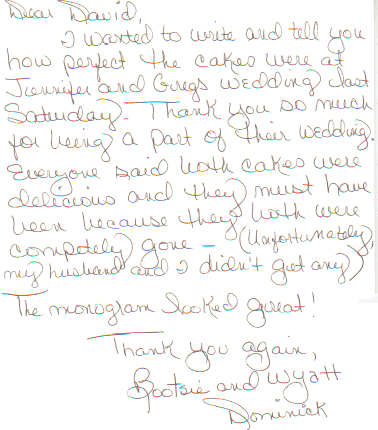 Dear David,
I wanted to write and tell you
how perfect the cakes were at
Jennifer and Gregs wedding last
Saturday. Thank you so much
for being a part of their wedding.
Everyone said both cakes were
delicious and they must have
been because they both were
completely gone - (Unfortunately,
my husband and I didn't get any)
The monogram looked great!
Thank you again,
Bootsie and Wyatt
Dominick